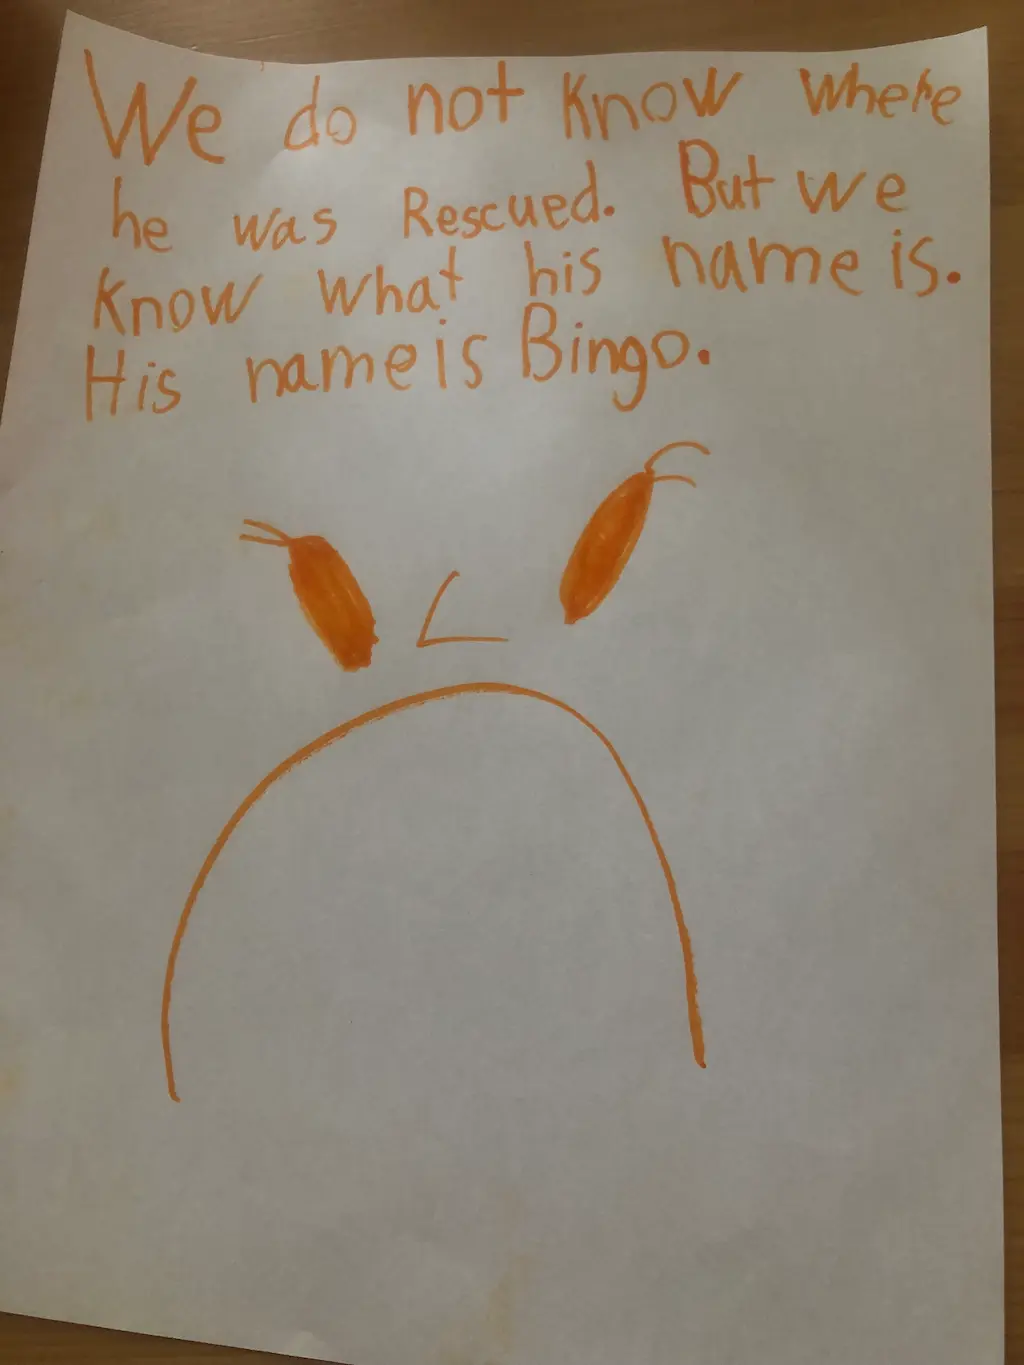 We do not know where
he was Rescued. But we
know what his name is.
His name is Bingo.